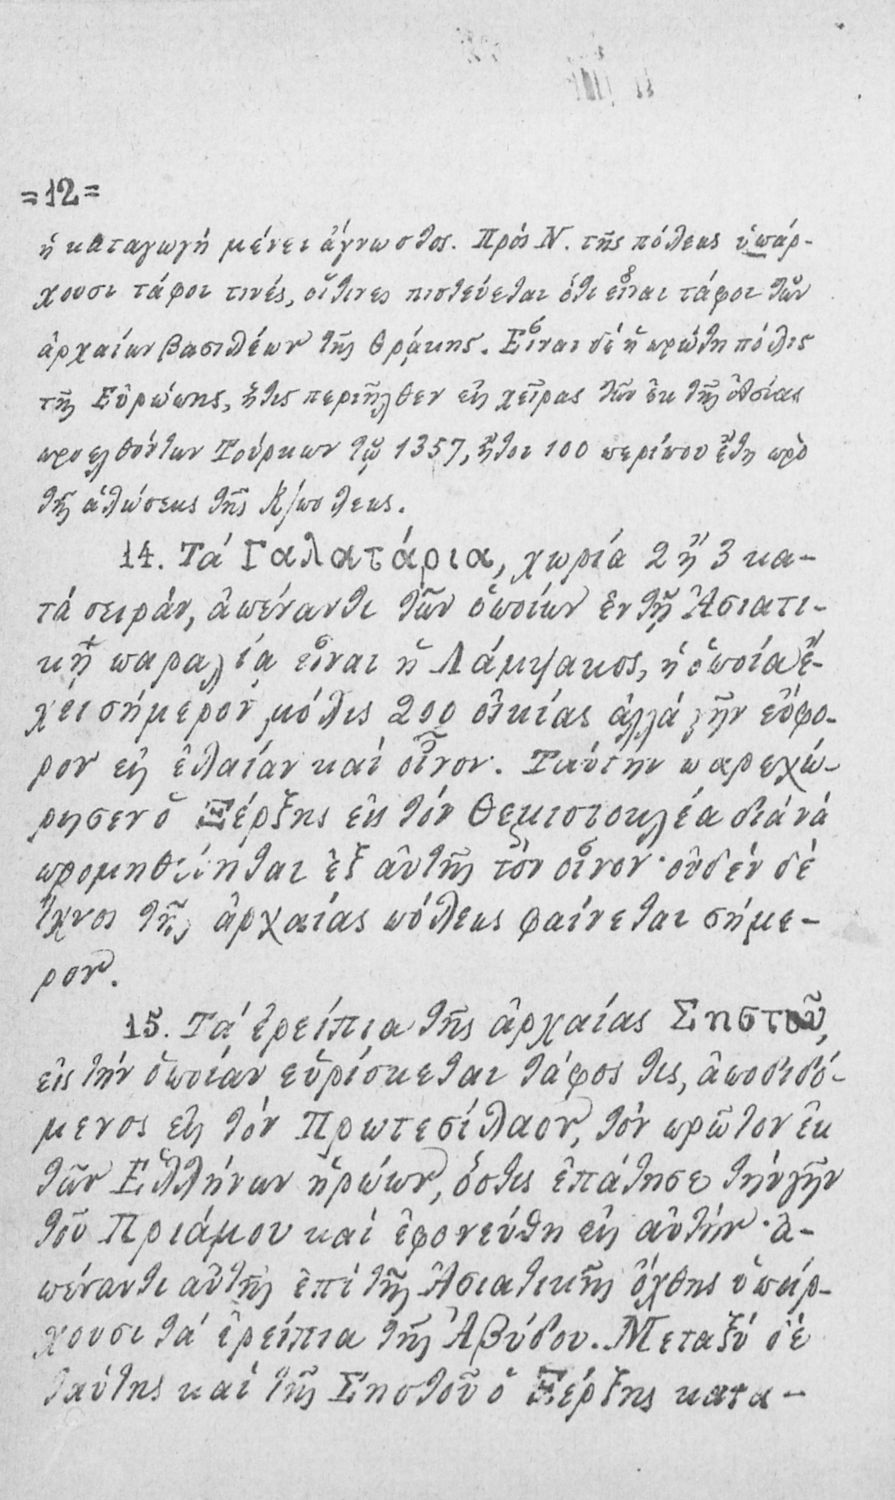 =12=
ἡ καταγωγή μένει ἄγνωστος. Πρός Ν. τῆς πόλεως ὑπάρ-
χουσι τάφοι τινές, οἵτινες πιστεύεται ὅτι εἶναι τάφοι τῶν
ἀρχαίων βασιλέων τῆς Θράκης. Εἶναι δέ ἡ πρώτη πόλις
τῆς Εὐρώπης, ἥτις περιῆλθεν εἰς χεῖρας τῶν ἐκ τῆς Ἀσίας
προελθόντων Τούρκων τῷ 1357, ἤτοι 100 περίπου ἔτη πρὸ
τῆς ἁλώσεως τῆς Κ/πόλεως.
14. Τά Γαλατάρια, χωρία 2 ἤ 3 κα-
τά σειράν, ἀπέναντι τῶν ὁποίων ἐν τῇ Ἀσιατι-
κῇ παραλίᾳ εἶναι ἡ Λάμψακος, ἡ ὁποία ἔ-
χει σήμερον μόλις 200 οἰκίας ἀλλά γῆν εὔφο-
ρον εἰς ἐλαίαν καί οἶνον. Ταύτην παρεχώ-
ρησεν ὁ Ξέρξης εἰς τόν Θεμιστοκλέα διά νά
προμηθεύηται ἐξ αὐτῆς τόν οἶνον· οὐδέν δέ
ἴχνος τῆς ἀρχαίας πόλεως φαίνεται σήμε-
ρον.
15. Τά ἐρείπια τῆς ἀρχαίας Σηστοῦ,
εἰς τήν ὁποίαν εὑρίσκεται τάφος τις, ἀποδιδό-
μενος εἰς τόν Πρωτεσίλαον, τόν πρῶτον ἐκ
τῶν Ἑλλήνων ἡρώων, ὅστις ἐπάτησε τήν γῆν
τοῦ Πριάμου καί ἐφονεύθη εἰς αὐτήν· ἀ-
πέναντι αὐτῆς ἐπί τῆς Ἀσιατικῆς ὄχθης ὑπάρ-
χουσι τά ἐρείπια τῆς Ἀβύδου. Μεταξύ δέ
ταύτης καί τῆς Σηστοῦ ὁ Ξέρξης κατα-